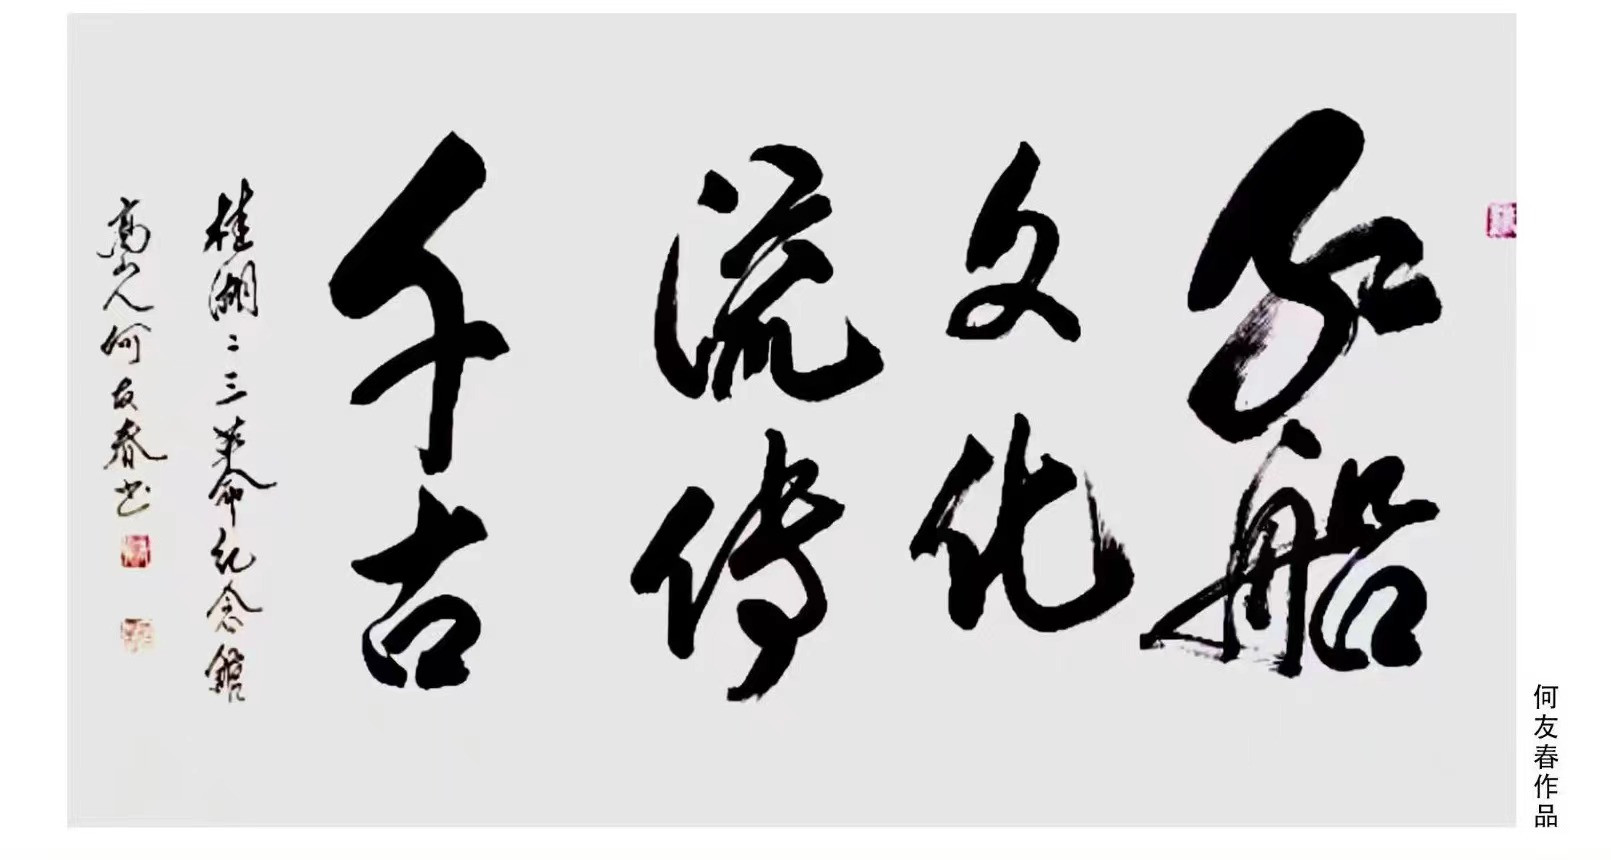 红船
文化
流传
千古
桂湖二三革命纪念馆
高山人何友春书
何友春作品